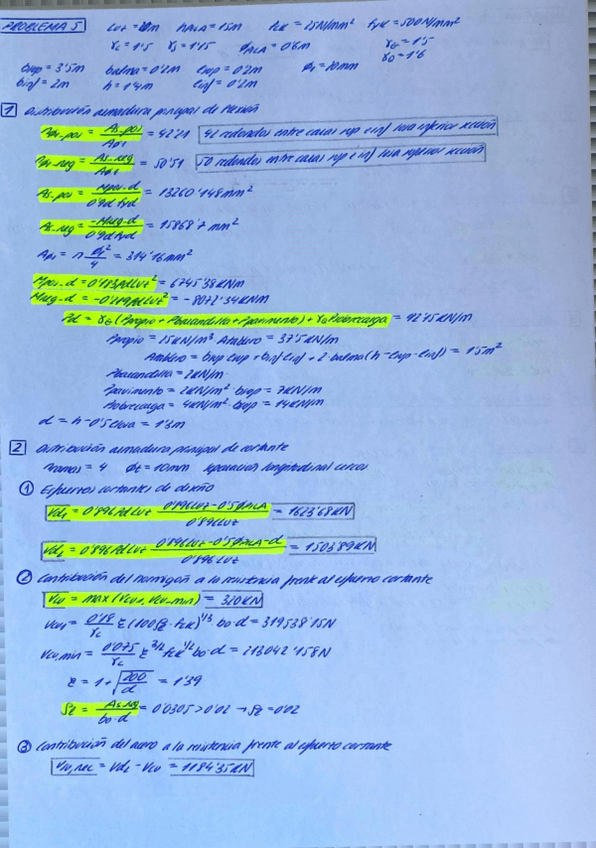 PROBLEMA 5 Luz = 20m hPILA = 1'5m fck = 25N/mm² fyk = 500N/mm²
γc = 1'5 γs = 1'15 ØPILA = 0'8m γG = 1'5
γQ = 1'6
bsup = 3'5m balma = 0'2m esup = 0'2m Øt = 10mm
binf = 2m h = 1'4m einf = 0'2m
1 Distribución armadura principal de flexión
= As,pos / Apr = 42'21 42 redondos entre caras sup e inf
= As,neg / Apr = 50'51 50 redondos entre caras sup e inf
As,pos = Mpos,d / 0'9d fyd = 13260'148mm²
As,neg = -Mneg,d / 0'9d fyd = 15868'7mm²
= 314'16mm²
Mpos,d = Pd Luz² = 6745'38KNm
Mneg,d = Pd Luz² = -8072'34KNm
Pd = γG (Ppropio + Pbarandilla + Ppavimento) + γQ Psobrecarga = 92'15KN/m
Ppropio = 25KN/m³ Atablero = 37'5KN/m
Atablero = bsup esup + binf einf + 2 balma (h - esup - einf) = 1'5m²
Pbarandilla = 2KN/m
Ppavimento = 2KN/m² bsup = 7KN/m
Psobrecarga = 4KN/m² bsup = 14KN/m
d = h - 0'5 = 1'3m
2 Distribución armadura principal de cortante
nramas = 4 Øt = 10mm separación longitudinal cercos
1 Esfuerzos cortantes de diseño
Vd1 = 0'896 Pd Luz (0'896 Luz - 0'5 ØPILA) / 0'896 Luz = 1623'68KN
Vd2 = 0'896 Pd Luz (0'896 Luz - 0'5 ØPILA - d) / 0'896 Luz = 1503'89KN
2 Contribución del hormigón a la resistencia frente al esfuerzo cortante
Vcu = max (Vcu1, Vcu,min) = 320KN
Vcu1 = 0'18 / γc ξ (100 ρl fck)^1/3 bo d = 319538'15N
Vcu,min = 0'075 / γc ξ^3/2 fck^1/2 bo d = 213042'158N
ξ = 1 + √(200 / d) = 1'39
ρl = As,neg / bo d = 0'0305 > 0'02 → ρl = 0'02
3 Contribución del acero a la resistencia frente al esfuerzo cortante
Vsu,nec = Vd2 - Vcu = 1184'35KN